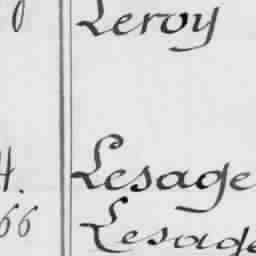 Leroy
4. Lesage
66 Lesage